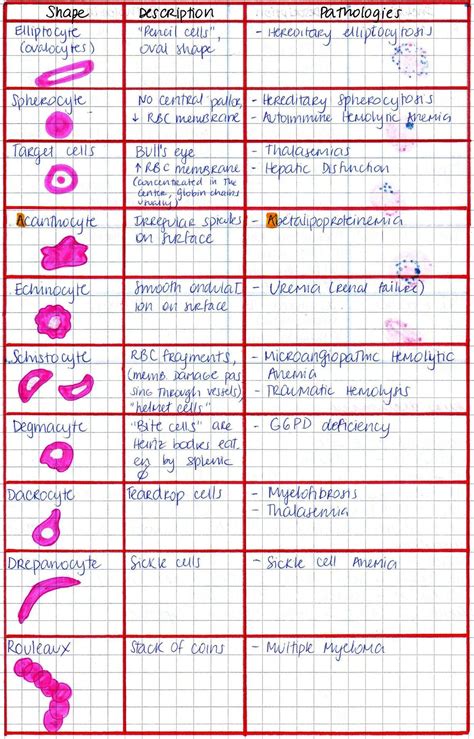 Shape Description Pathologies
Elliptocyte "Pencil cells", - Hereditary elliptocytosis
(ovalocytes) oval shape
Spherocyte No central pallor, - Hereditary Spherocytosis
↓ RBC membrane - Autoimmune Hemolytic Anemia
Target cells Bull's eye - Thalasemias
↑ RBC membrane - Hepatic Disfunction
(concentrated in the
center, globin chains
usually)
Acanthocyte Irregular spicules - Abetalipoproteinemia
on surface
Echinocyte Smooth ondulat - Uremia (renal failure)
ion on surface
Schistocyte RBC fragments, - Microangiopathic Hemolytic
(memb. damage pas Anemia
sing through vessels) - Traumatic Hemolysis
"helmet cells"
Degmacyte "Bite cells" are - G6PD deficiency
Heinz bodies eat
en by splenic
Φ
Dacrocyte Teardrop cells - Myelofibrosis
- Thalasemia
Drepanocyte Sickle cells - Sickle cell Anemia
Rouleaux Stack of coins - Multiple Myeloma